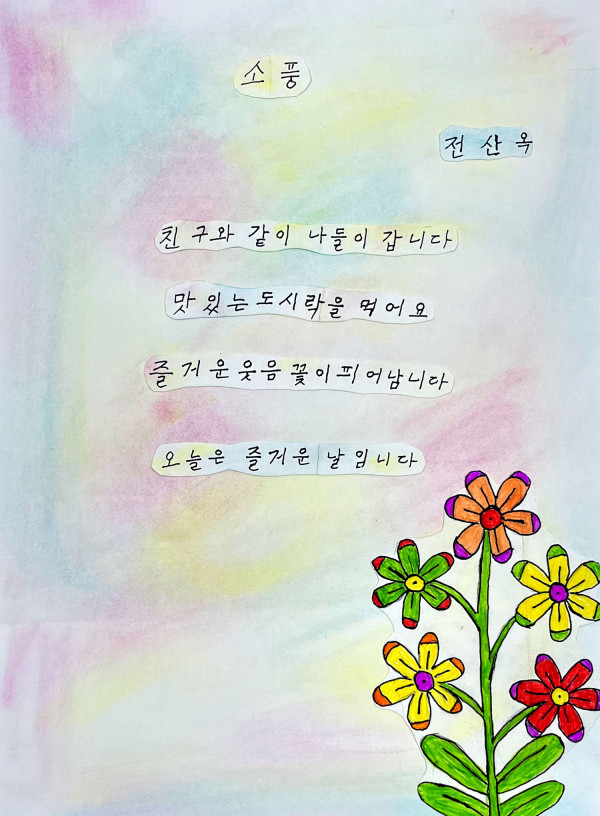 소풍
전산옥
친구와 같이 나들이 갑니다
맛있는 도시락을 먹어요
즐거운 웃음꽃이 피어납니다
오늘은 즐거운 날입니다